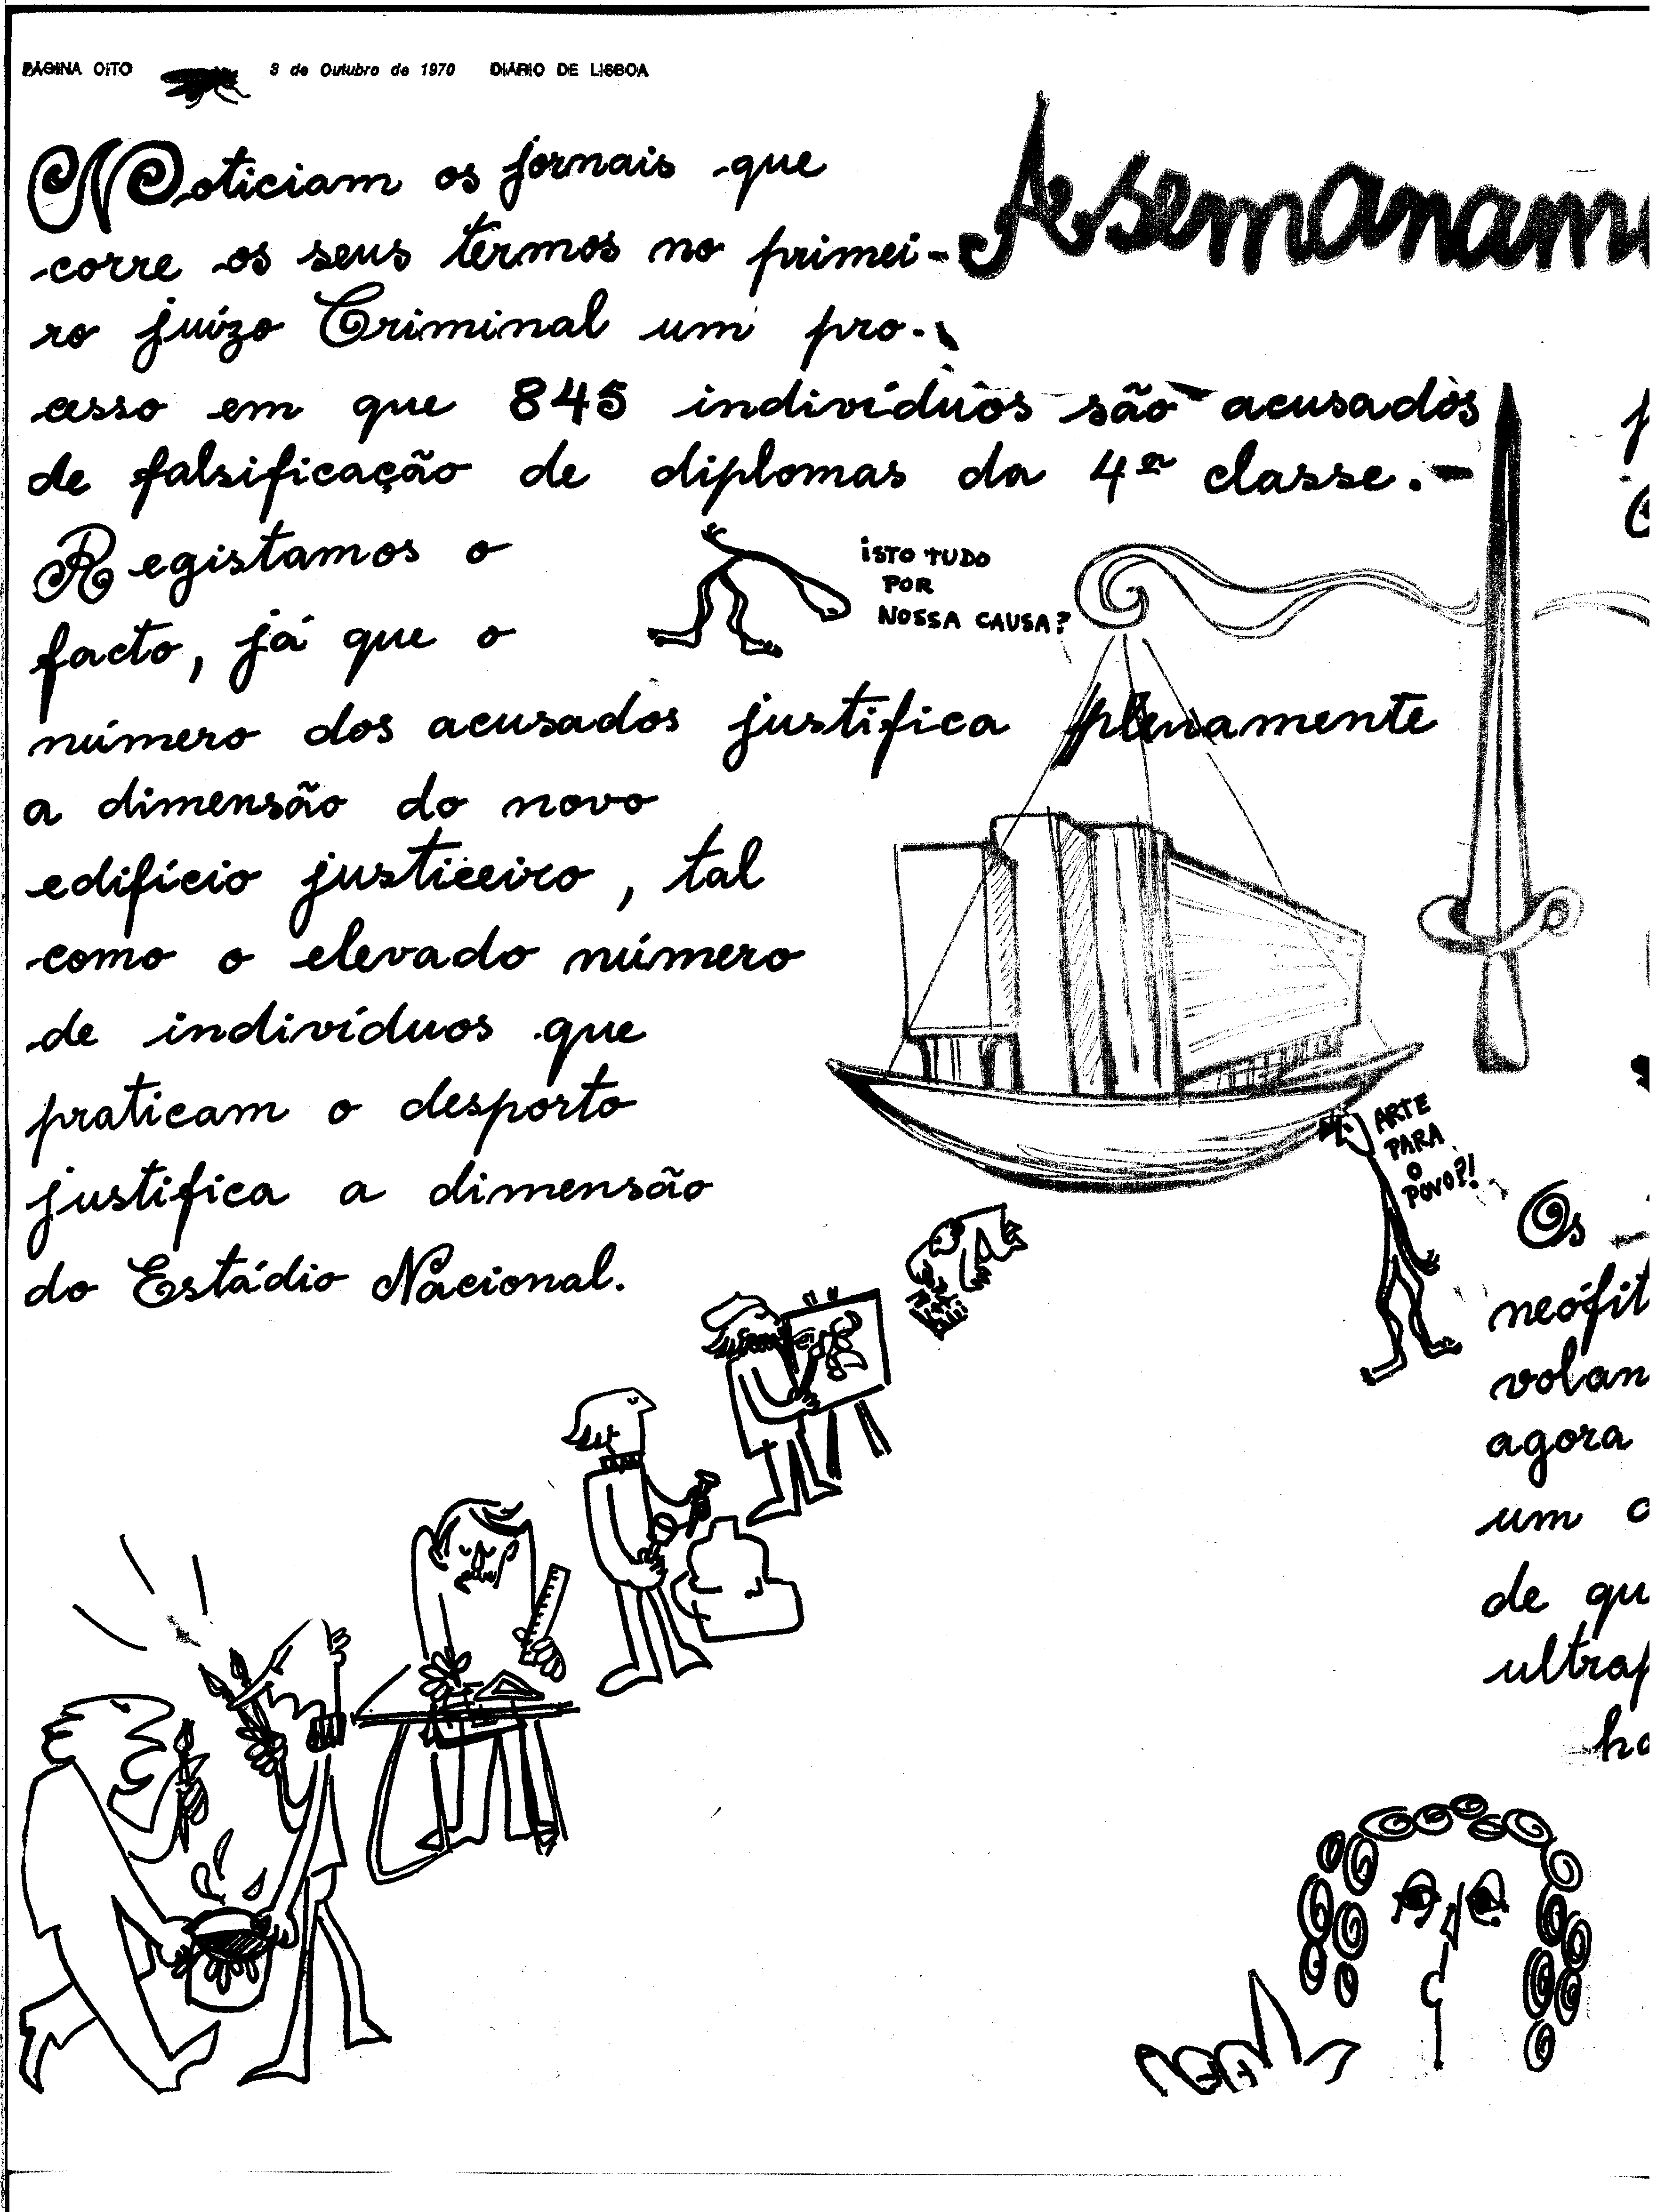 PÁGINA OITO 3 de Outubro de 1970 DIÁRIO DE LISBOA
A semanam
Noticiam os jornais que
corre os seus termos no primei-
ro juízo Criminal um pro-
cesso em que 845 indivíduos são acusados
de falsificação de diplomas da 4ª classe.-
Registamos o
facto, já que o
número dos acusados justifica plenamente
a dimensão do novo
edifício justiceiro, tal
como o elevado número
de indivíduos que
praticam o desporto
justifica a dimensão
do Estádio Nacional.
ISTO TUDO
POR
NOSSA CAUSA?
ARTE
PARA
O
POVO?!
Os
neófit
volan
agora
um
de qu
ultrap
ha